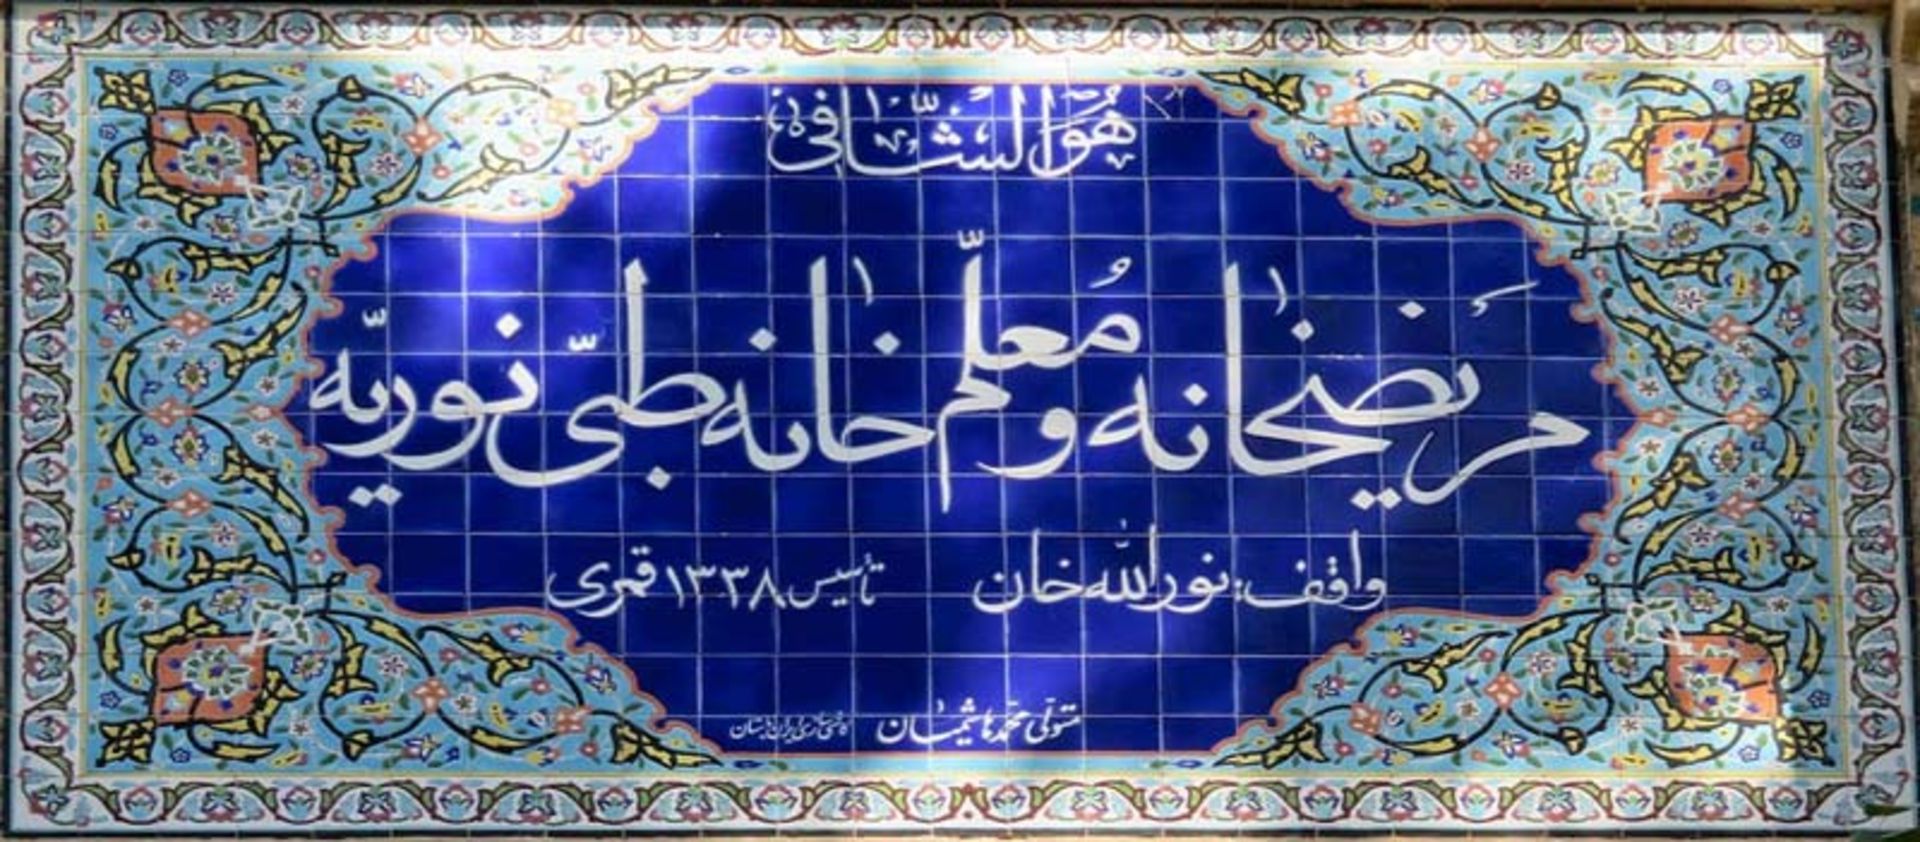 هُوَ الشّافی
مریضخانه و مُعلّم خانه طبّی نوریّه
واقف: نورالله خان تأسیس ۱۳۳۸ قمری
متولّی محمّد هاشمیان